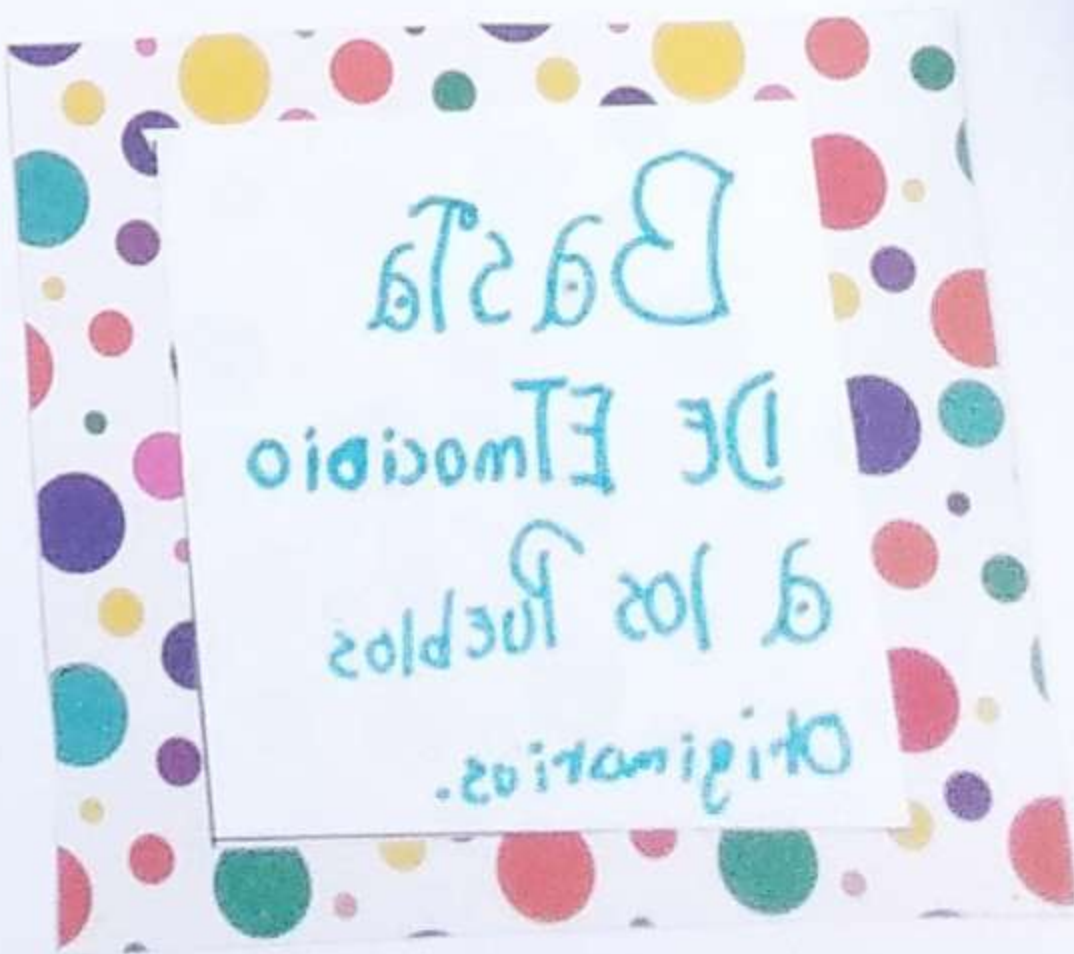 BasTa
DE ETnocidio
a los Pueblos
Originarios.